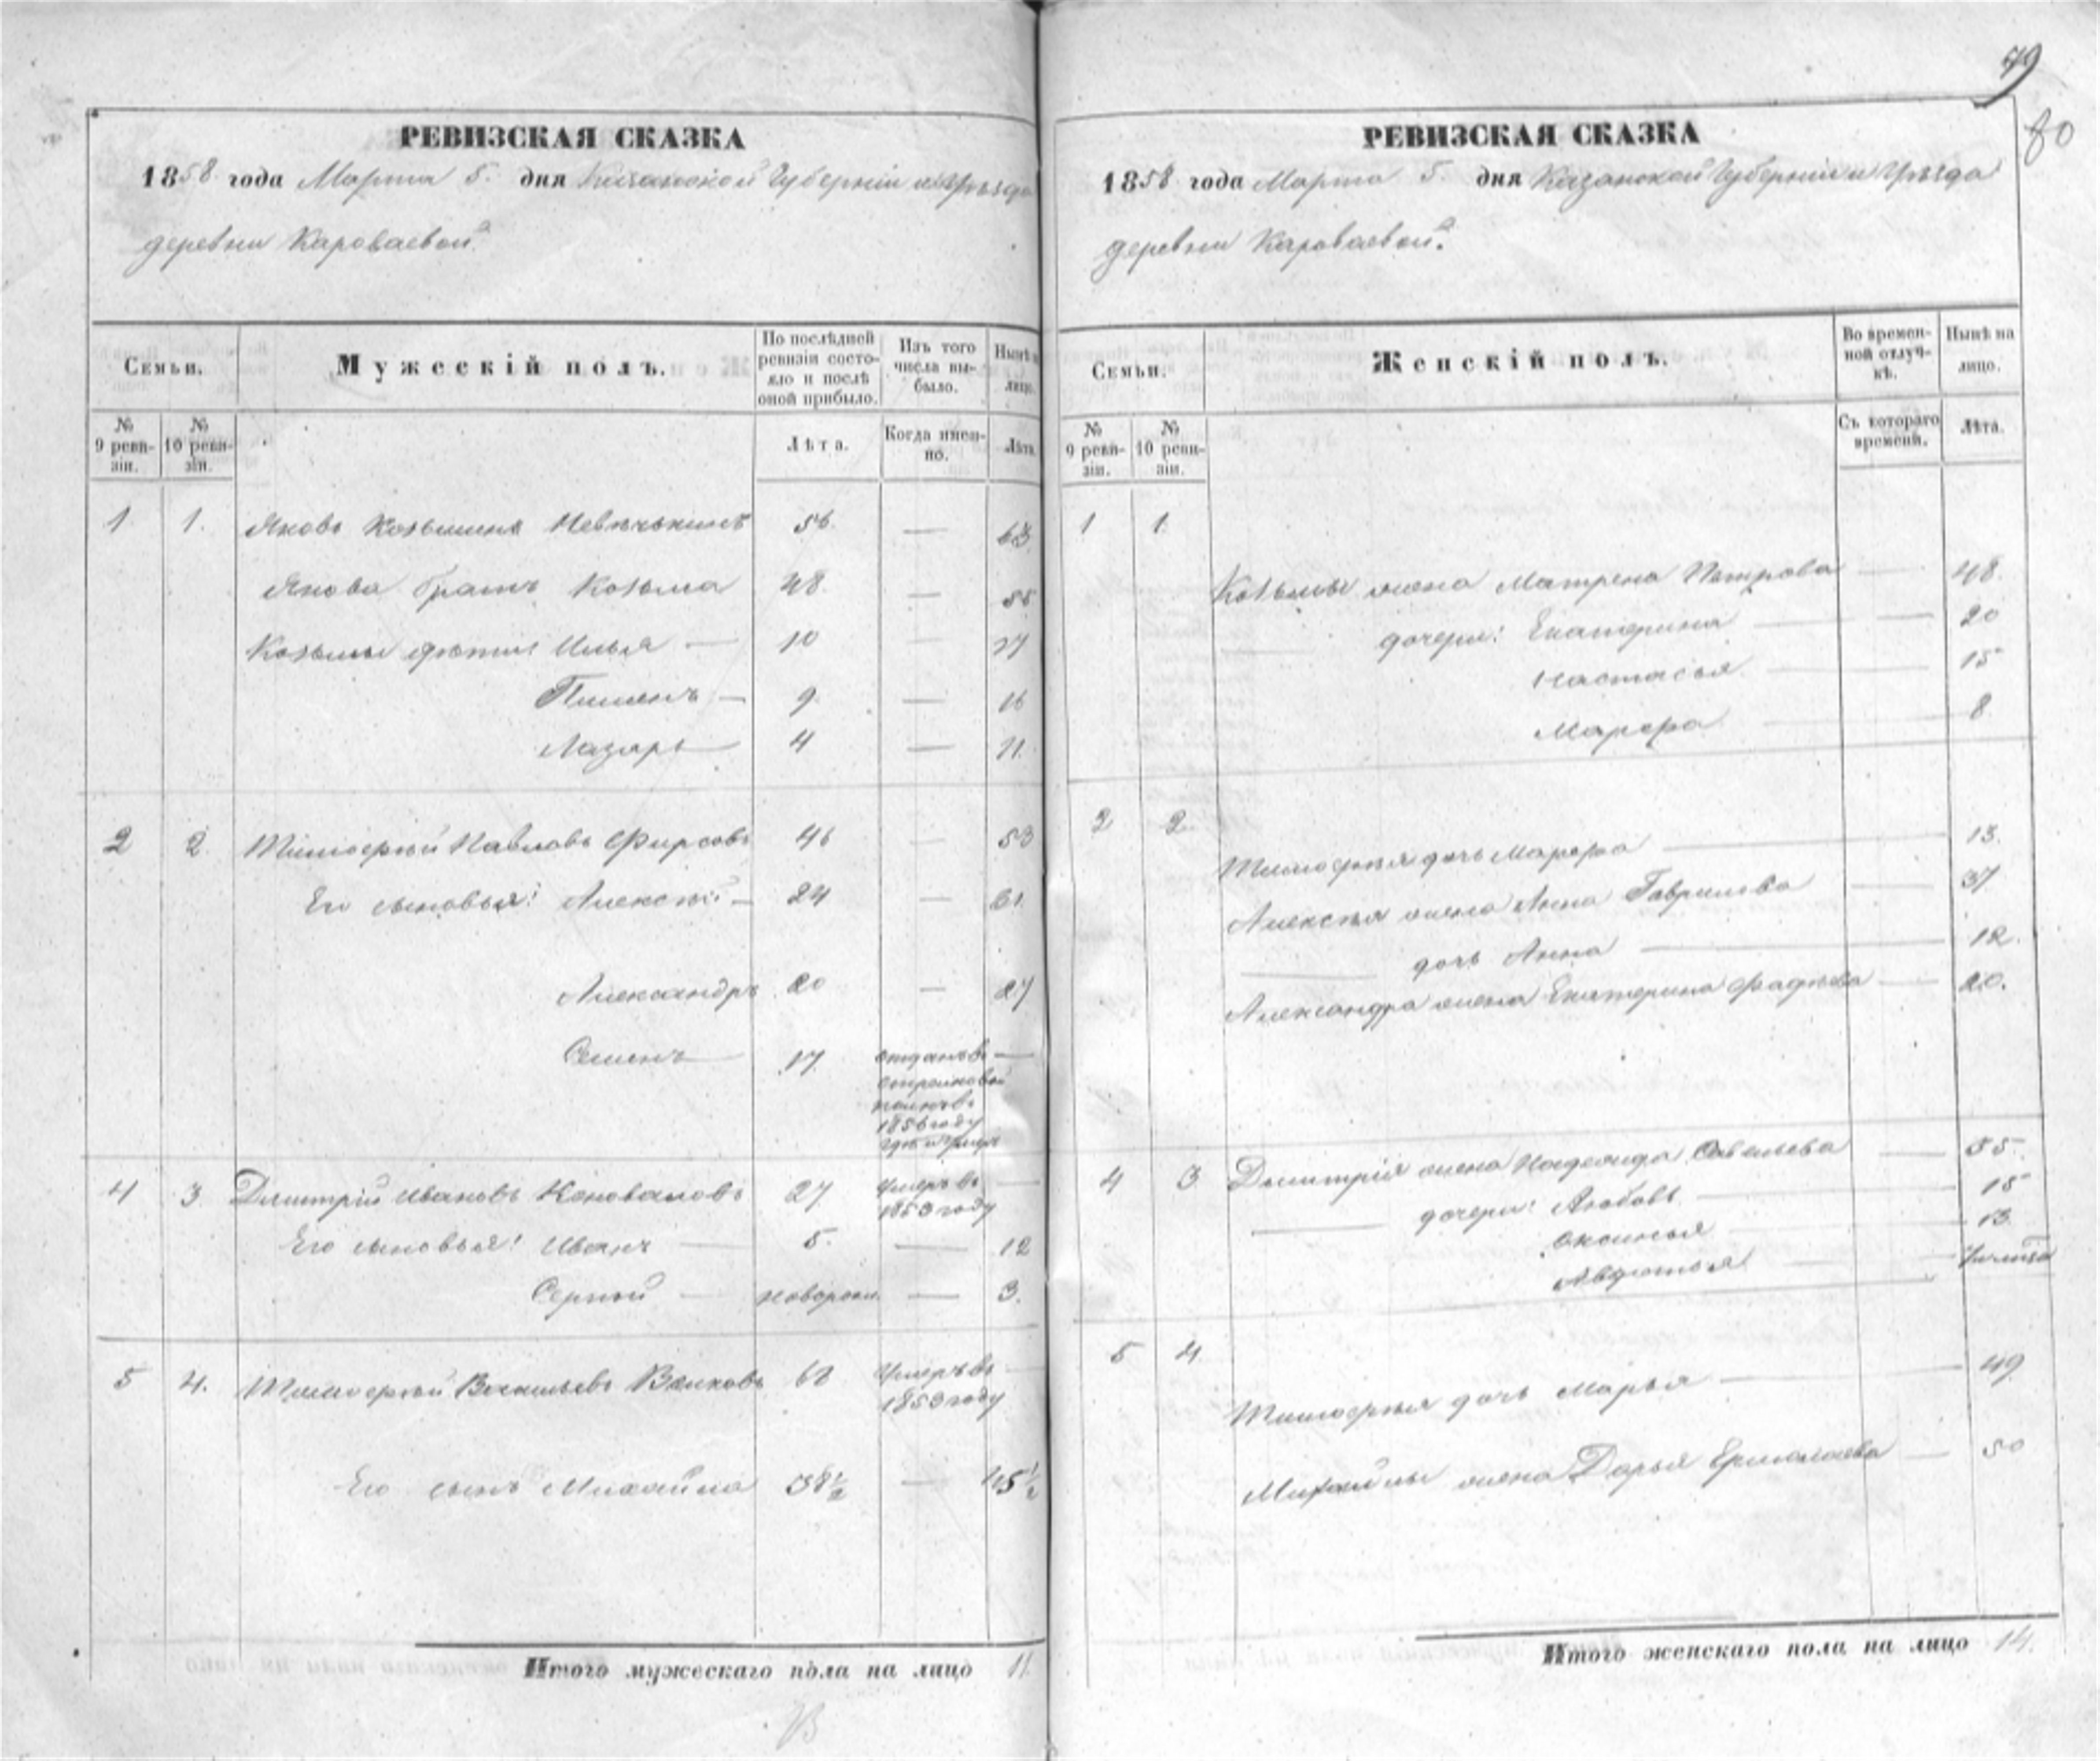 79
80
РЕВИЗСКАЯ СКАЗКА
1858 года Марта 5. дня Казанской Губерніи и Уѣзда
деревни Короваевой.
Семьи. Мужескій полъ. По послѣдней ревизіи состояло и послѣ оной прибыло. Изъ того числа выбыло. Нынѣ на лицо.
№ 9 ревизіи. № 10 ревизіи. Лѣта. Когда именно. Лѣта.
1 1. Яковъ Козьминъ 56. — 63.
Якова братъ Козьма 48. — 55
Козьмы дѣти: Илья — 10 — 17
Пименъ — 9. — 16
Лазарь — 4 — 11.
2 2. Тимофѣй Павловъ Фирсовъ 46 — 53
Его сыновья: Алексѣй — 24 — 31.
Александръ 20 — 27
Семенъ — 17. отданъ въ —
полкъ въ
1856 году
гдѣ и умеръ
4 3 Дмитрій Ивановъ Коноваловъ 27 Умеръ въ —
1853 году
Его сыновья: Иванъ — 5. — 12
Сергѣй — новорож. — 3.
5 4. Тимофѣй Васильевъ Волковъ 62 Умеръ въ —
1853 году
Его сынъ Михайла 38½ — 45½
Итого мужескаго пола на лицо 11.
РЕВИЗСКАЯ СКАЗКА
1858 года Марта 5. дня Казанской Губерніи и Уѣзда
деревни Короваевой.
Семьи. Женскій полъ. Во временной отлучкѣ. Нынѣ на лицо.
№ 9 ревизіи. № 10 ревизіи. Съ котораго времени. Лѣта.
1 1.
Козьмы жена Матрена Петрова — 48.
— дочери: Екатерина — — 20
Настасья — — 15
Марфа — 8.
2 2.
Тимофѣя дочь Марфа — 13.
Алексѣя жена Анна Гаврилова — 37
— дочь Анна — 12.
Александра жена Екатерина Фадѣева — 20.
4 3 Дмитрія жена Савельева — 35.
— дочери: Любовь — 15
Аксинья — 13.
Авдотья — —
5 4
Тимофѣя дочь Марья — 49.
Михайлы жена Дарья Ермолаева — 50
Итого женскаго пола на лицо 14.